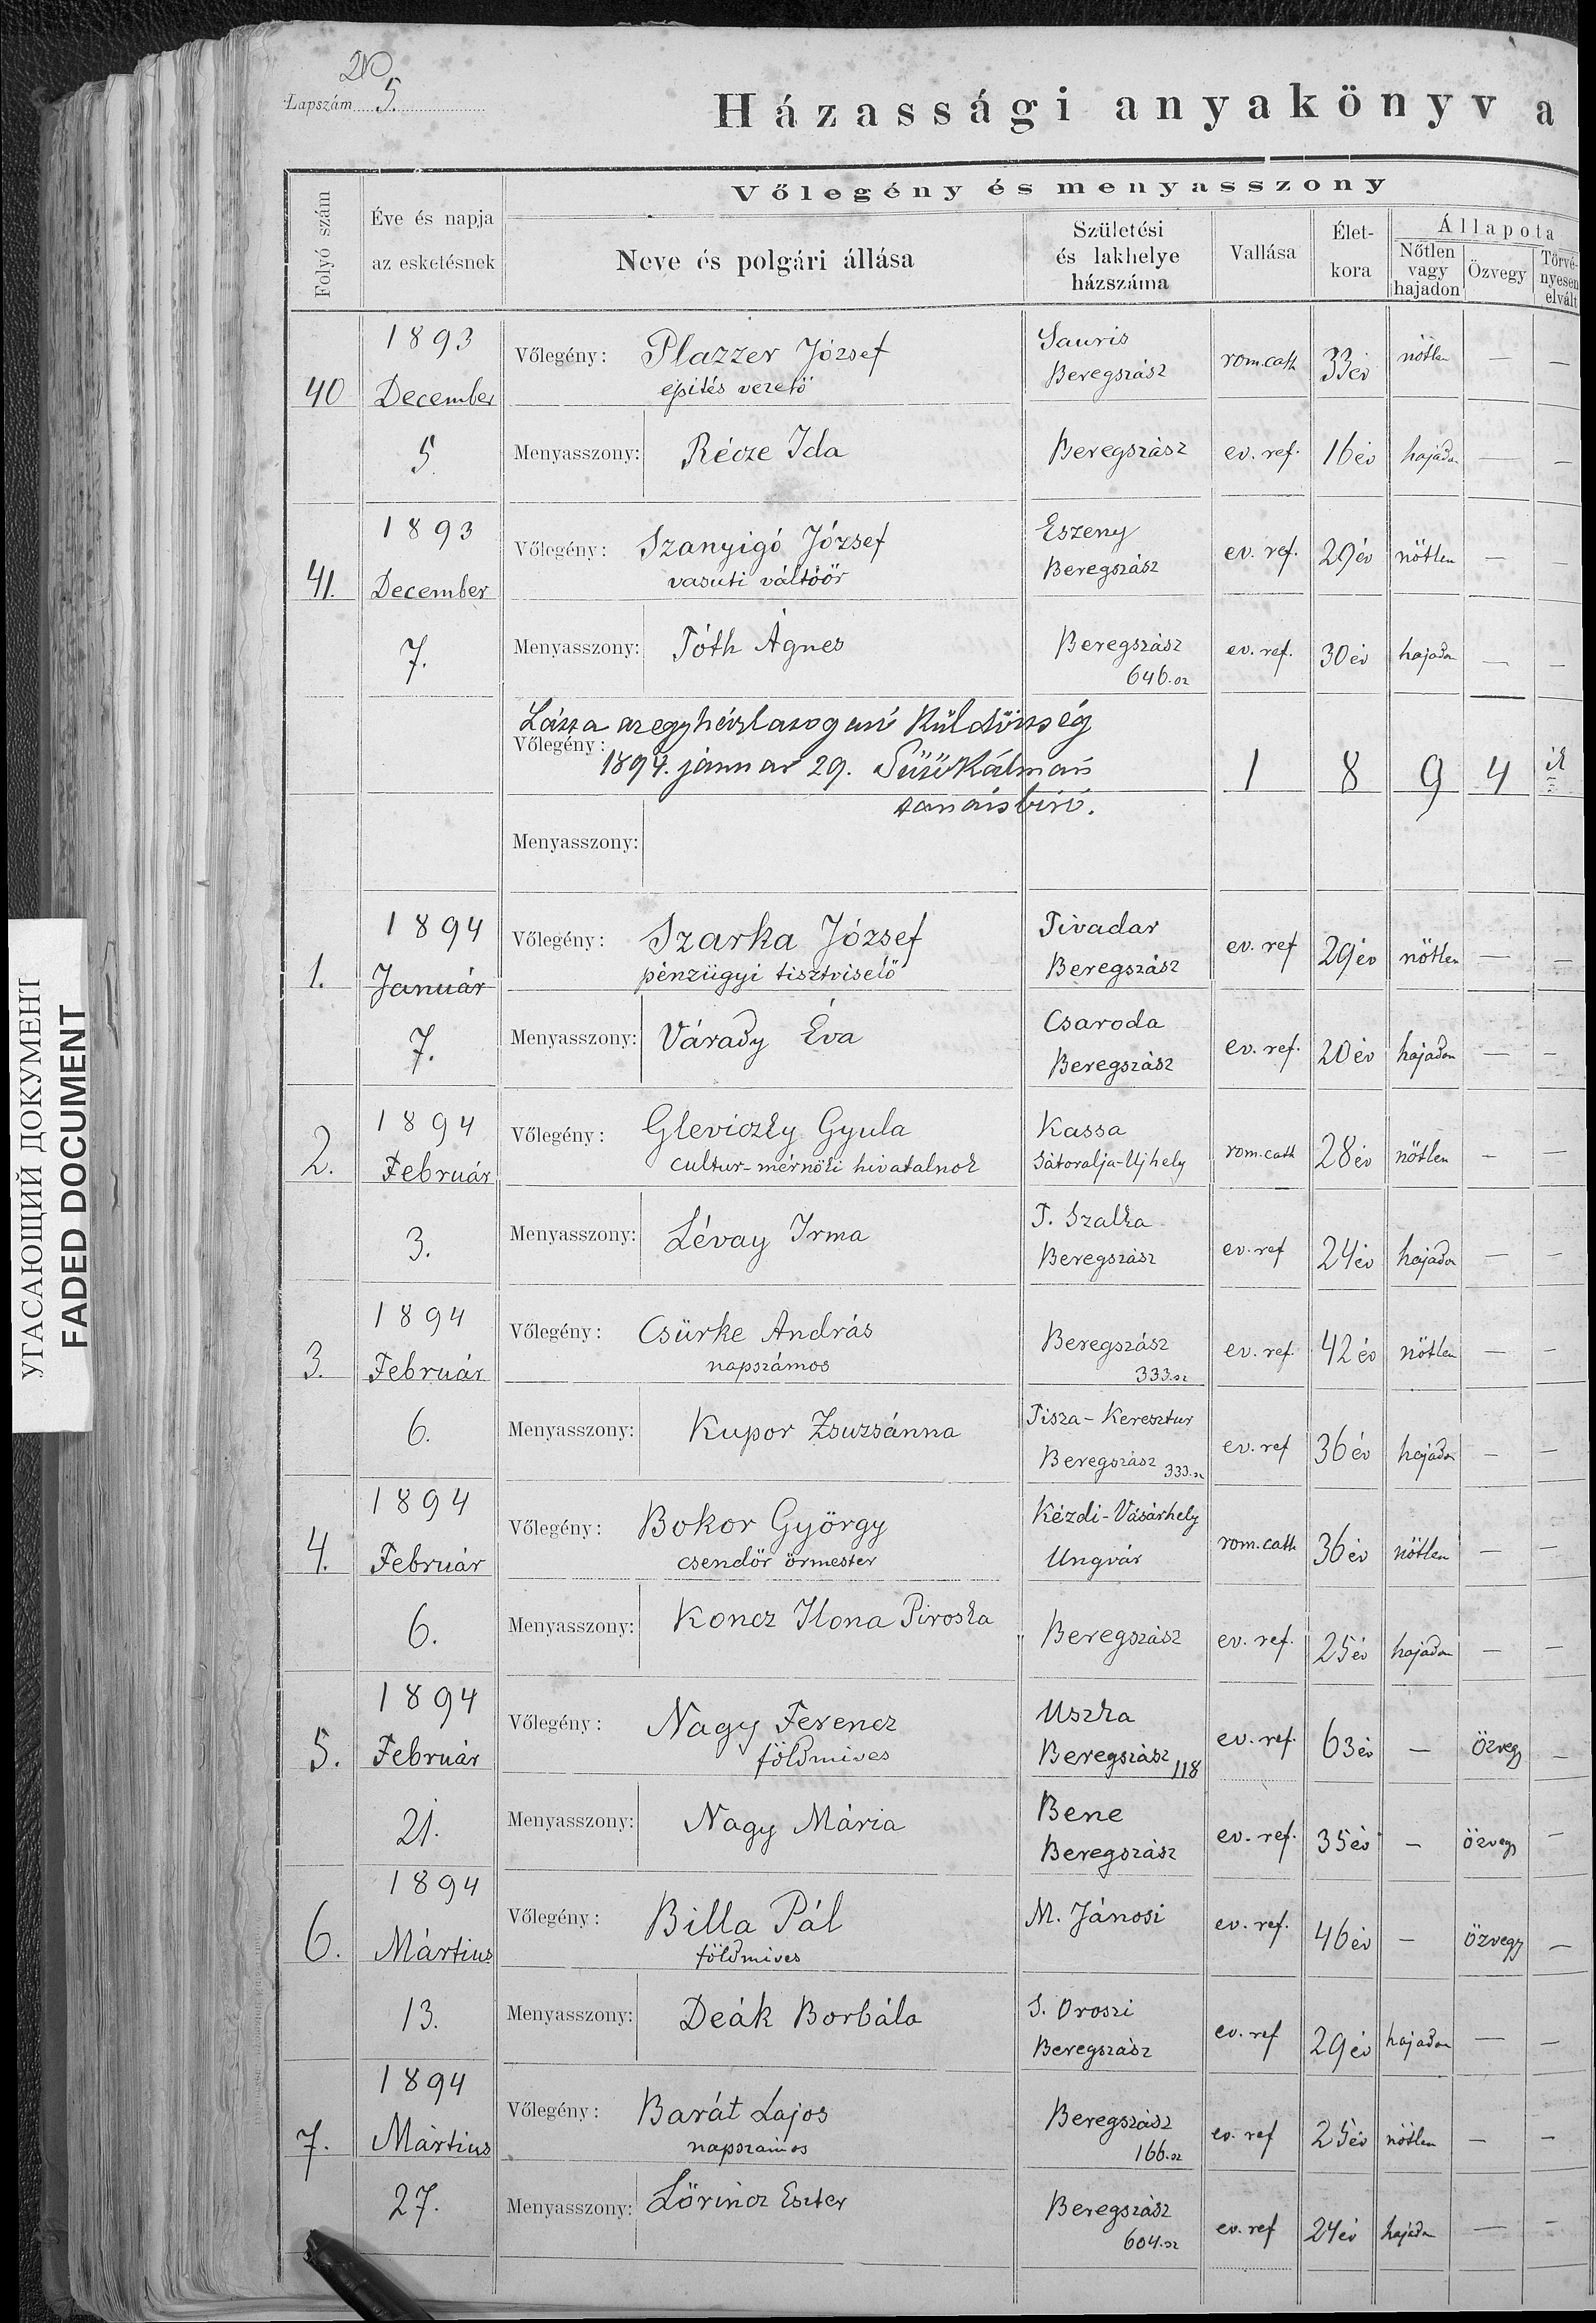 Lapszám 5.
Házassági anyakönyv a
Folyó szám
Éve és napja
az esketésnek
Vőlegény és menyasszony
Neve és polgári állása
Születési
és lakhelye
házszáma
Vallása
Élet-
kora
Állapota
Nőtlen
vagy
hajadon
Özvegy
Törvé-
nyesen
elvált
40 1893 December 5
Vőlegény: Plazzer József Sauris rom. cath 33 év nőtlen — —
épités vezető Beregszász
Menyasszony: Récze Ida Beregszász ev. ref. 16 év hajadon — —
41. 1893 December 7.
Vőlegény: Szanyigó József Eszeny ev. ref. 29 év nőtlen — —
vasuti váltóőr Beregszász
Menyasszony: Tóth Ágnes Beregszász ev. ref. 30 év hajadon — —
646. sz
Látta az egyházlátogató Küldöttség
Vőlegény:
1894. január 29. Szűts Kálmán
tanácsbíró.
1 8 9 4 ik
Menyasszony:
1. 1894 Január 7.
Vőlegény: Szarka József Tivadar ev. ref 29 év nőtlen — —
pénzügyi tisztviselő Beregszász
Menyasszony: Várady Éva Csaroda ev. ref. 20 év hajadon — —
Beregszász
2. 1894 Február 3.
Vőlegény: Gleviczky Gyula Kassa rom. cath 28 év nőtlen — —
cultur-mérnöki hivatalnok Sátoralja-Ujhely
Menyasszony: Lévay Irma T. Szalka ev. ref 24 év hajadon — —
Beregszász
3. 1894 Február 6.
Vőlegény: Csürke András Beregszász ev. ref. 42 év nőtlen — —
napszámos 333. sz
Menyasszony: Kupor Zsuzsánna Tisza-Keresztur ev. ref 36 év hajadon — —
Beregszász 333. sz
4. 1894 Február 6.
Vőlegény: Bokor György Kézdi-Vásárhely rom. cath 36 év nőtlen — —
csendőr őrmester Ungvár
Menyasszony: Koncz Ilona Piroska Beregszász ev. ref. 25 év hajadon — —
5. 1894 Február 21.
Vőlegény: Nagy Ferencz Uszka ev. ref. 63 év — özvegy —
földmives Beregszász 118
Menyasszony: Nagy Mária Bene ev. ref. 35 év — özvegy —
Beregszász
6. 1894 Mártius 13.
Vőlegény: Billa Pál M. Jánosi ev. ref. 46 év — özvegy —
földmives
Menyasszony: Deák Borbála S. Oroszi ev. ref 29 év hajadon — —
Beregszász
7. 1894 Mártius 27.
Vőlegény: Barát Lajos Beregszász ev. ref 25 év nőtlen — —
napszámos 166. sz
Menyasszony: Lőrincz Eszter Beregszász ev. ref 24 év hajadon — —
604. sz
УГАСАЮЩИЙ ДОКУМЕНТ
FADED DOCUMENT